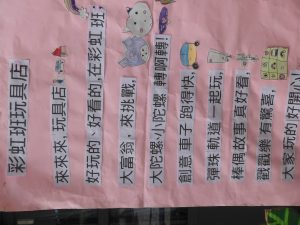 彩虹班玩具店
來來來,玩具店
好玩的、好看的,在彩虹班
大富翁,來挑戰,
大陀螺、小陀螺 轉啊轉!
創意 車子 跑得快,
彈珠 軌道 一起玩,
棒偶 故事 真好看,
戳戳樂 有驚喜,
大家玩的 好開心